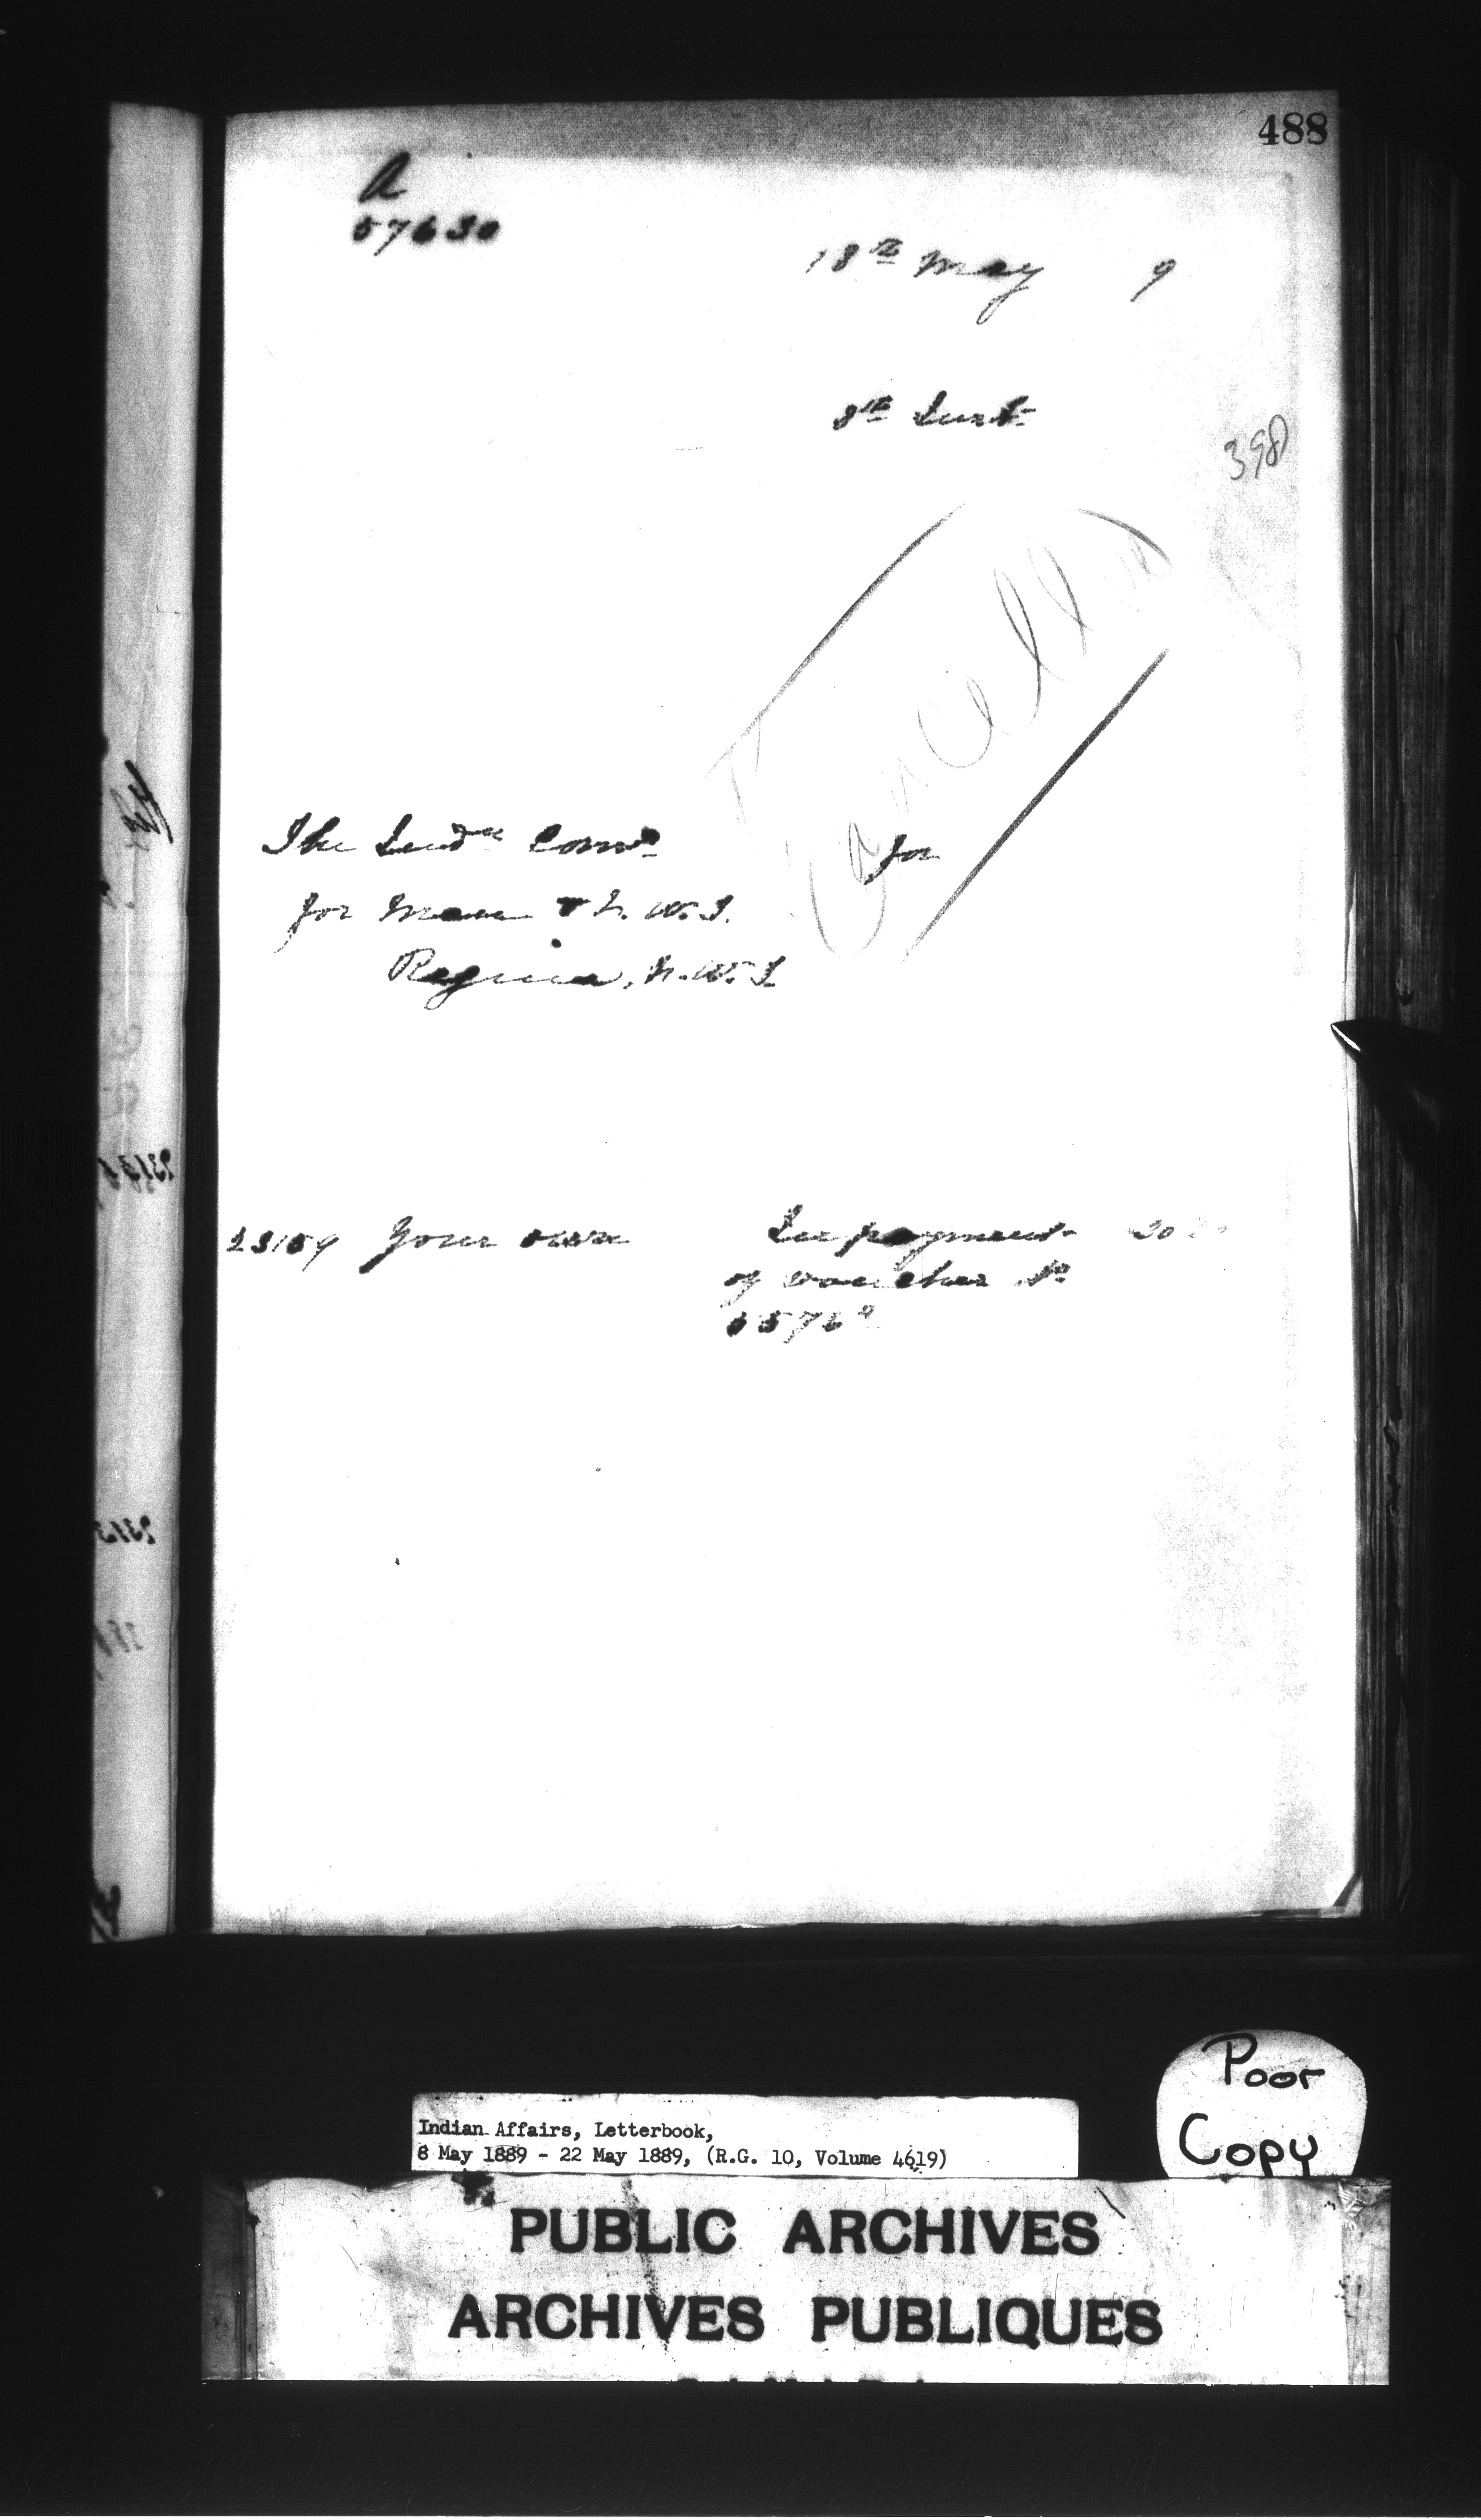 488
A
57630
18th May 9
8th Inst.
398
Cancelled
The Indn Comr
for
for Man & N. W. T.
Regina, N. W. T.
23159 Your own In payment 20
of voucher No
Poor
Copy
Indian Affairs, Letterbook,
8 May 1889 - 22 May 1889, (R.G. 10, Volume 4619)
PUBLIC ARCHIVES
ARCHIVES PUBLIQUES